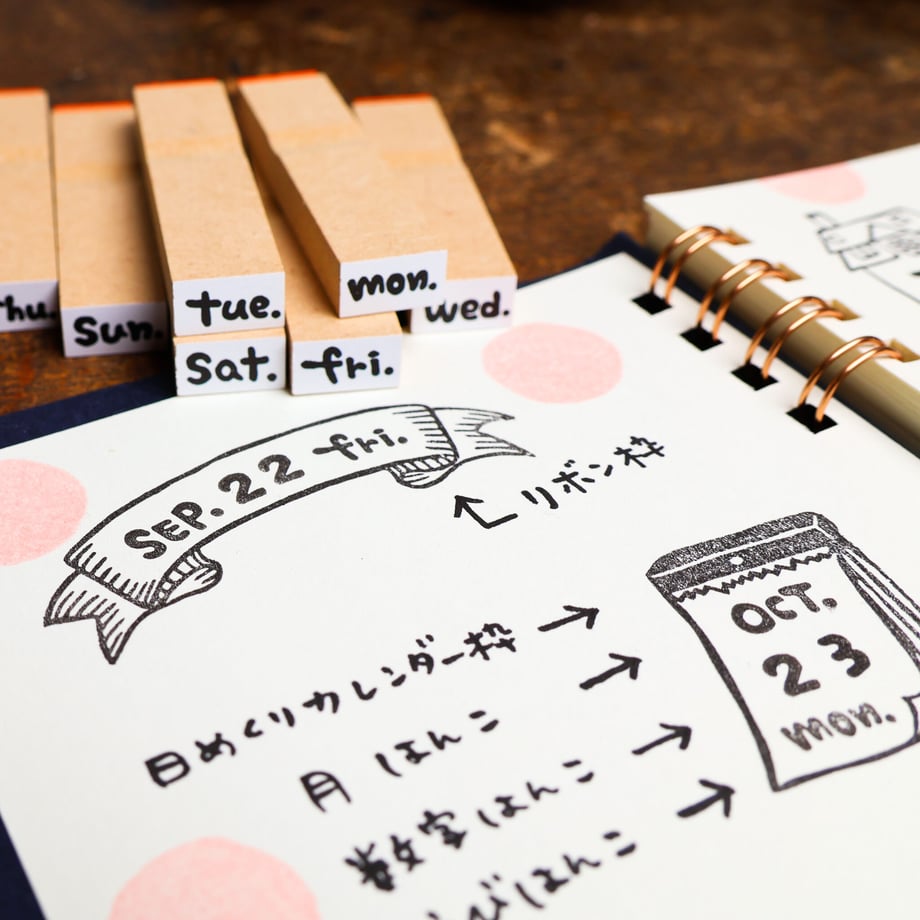 thu.
Sun.
tue.
mon.
wed.
Sat.
fri.
SEP. 22 fri.
リボン枠
OCT.
23
mon.
日めくりカレンダー枠
月はんこ
数字はんこ
びはんこ